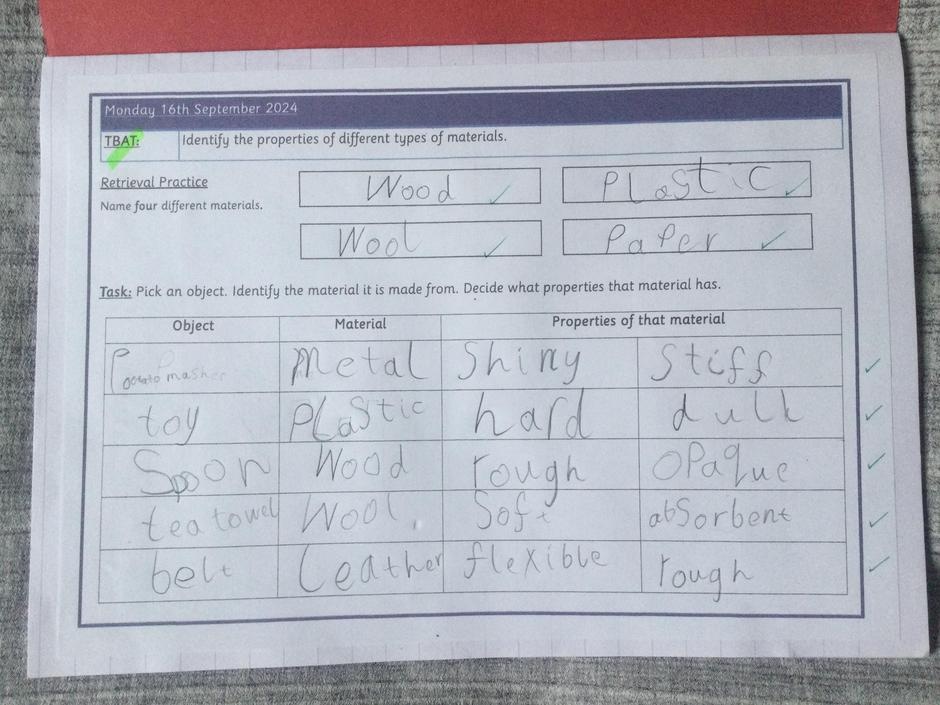 Monday 16th September 2024
TBAT: Identify the properties of different types of materials.
Retrieval Practice
Name four different materials.
Wood PLastic
Wool PaPer
Task: Pick an object. Identify the material it is made from. Decide what properties that material has.
Object Material Properties of that material
Potato masher Metal Shiny Stiff
toy PLastic hard dull
Spoon Wood rough OPaque
tea towel Wool. Soft abSorbent
belt Leather flexible rough